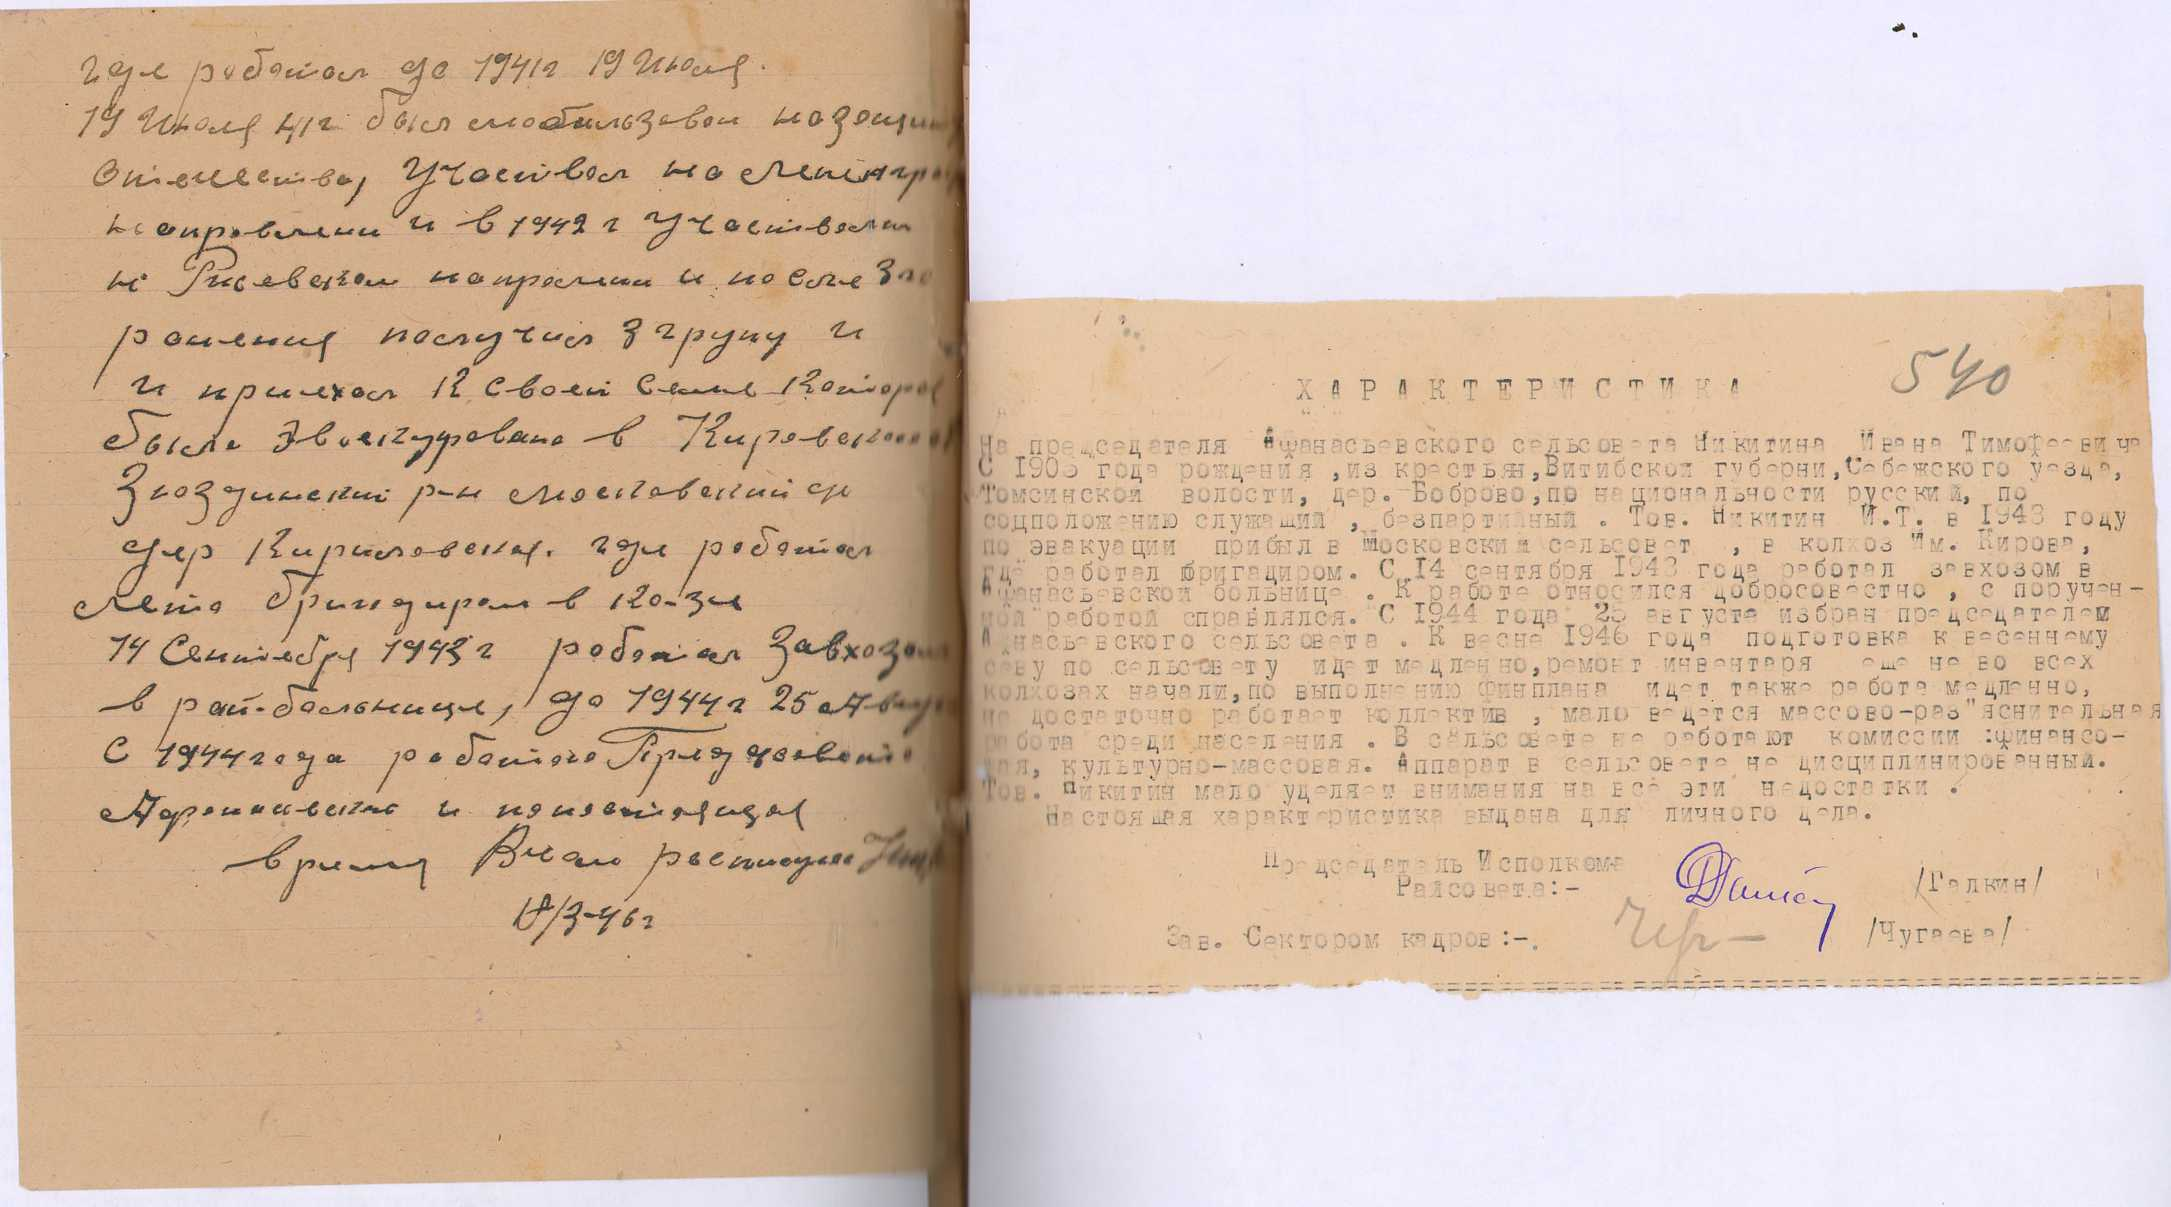 где работал до 1941г 19 Июля.
19 Июля 41г был мобильзован
Отечества, Участвовал на
и в 1942 г Участвовал
на Ржевском напралени и после
ранения получил 3 групу и
и приехал к своей семе
была Эвокуирована в
Зюздинский р-н Московский с/с
дер Кириловская. где работал
лето бригадиром в ко-зе
14 Сентября 1943 г работал Завхозом
в рай-больнице, до 1944 г 25
С 1944 года работаю
и понастоящая
время В чем росписуюсь
18/3-46г
540
ХАРАКТЕРИСТИКА
На председателя Афанасьевского сельсовета Никитина Ивана Тимофеевича
С 1903 года рождения ,из крестьян,Витибской губерни,Себежского уезда,
Томсинской волости, дер. Боброво,по национальности русский, по
соцположению служащий , безпартийный . Тов. Никитин И.Т. в 1943 году
по эвакуации прибыл в Московский сельсовет , в колхоз им. Кирова,
где работал бригадиром. С 14 сентября 1943 года работал завхозом в
Афанасьевской больнице . К работе относился добросовестно , с поручен-
ной работой справлялся. С 1944 года 25 августа избран председателем
Афнасьевского сельсовета . К весне 1946 года подготовка к весеннему
севу по сельсовету идет медленно,ремонт инвентаря еще не во всех
колхозах начали,по выполнению финплана идет также работа медленно,
не достаточно работает коллектив , мало ведется массово-раз"яснительная
работа среди населения . В сельсовете не работают комиссии :финансо-
вая, культурно-массовая. Аппарат в сельсовете не дисциплинированный.
Тов. Никитин мало уделяет внимания на все эти недостатки .
Настоящая характеристика выдана для личного дела.
Председатель Исполкома
Райсовета:- /Галкин/
Зав. Сектором кадров:-. /Чугаева/